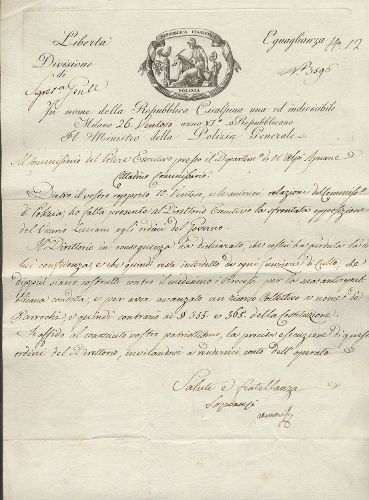 Libertà
Eguaglianza
12
Divisione
di
Segret.a Gen.le
REPUBBLICA CISALPINA
POLIZIA
N.o 3696
In nome della Repubblica Cisalpina una ed indivisibile
Milano 26 Ventoso anno VI.o Repubblicano
Il Ministro della Polizia Generale
Al Commissario del Potere Esecutivo presso il Dipartim.to delle Alpi Apuane
Cittadino Commissario!
Dietro il vostro rapporto 10 Ventoso, ed anteriori relazioni del Commiss.o
di Polizia, ho fatto presente al Direttorio Esecutivo la sfrontata opposizione
del Vicario Luciani agli ordini del Governo.
Il Direttorio in conseguenza ha dichiarato, che costui ha perduta la di
lui confidenza, e che quindi resta interdetto da ogni funzione di Culto, che
dippiù siano assunte contro il medesimo i Processi per la sua antirepub-
blicana condotta, e per aver avanzato un ricorso Collettivo a nome de'
Parrochi, e quindi contrario ai § 355 e 365 della Costituzione.
Io affido al conosciuto vostro patriottismo, la precisa esecuzione di quest'
ordine del Direttorio, invitandovi a rendermi conto dell'operato
Salute e Fratellanza
Sopransi